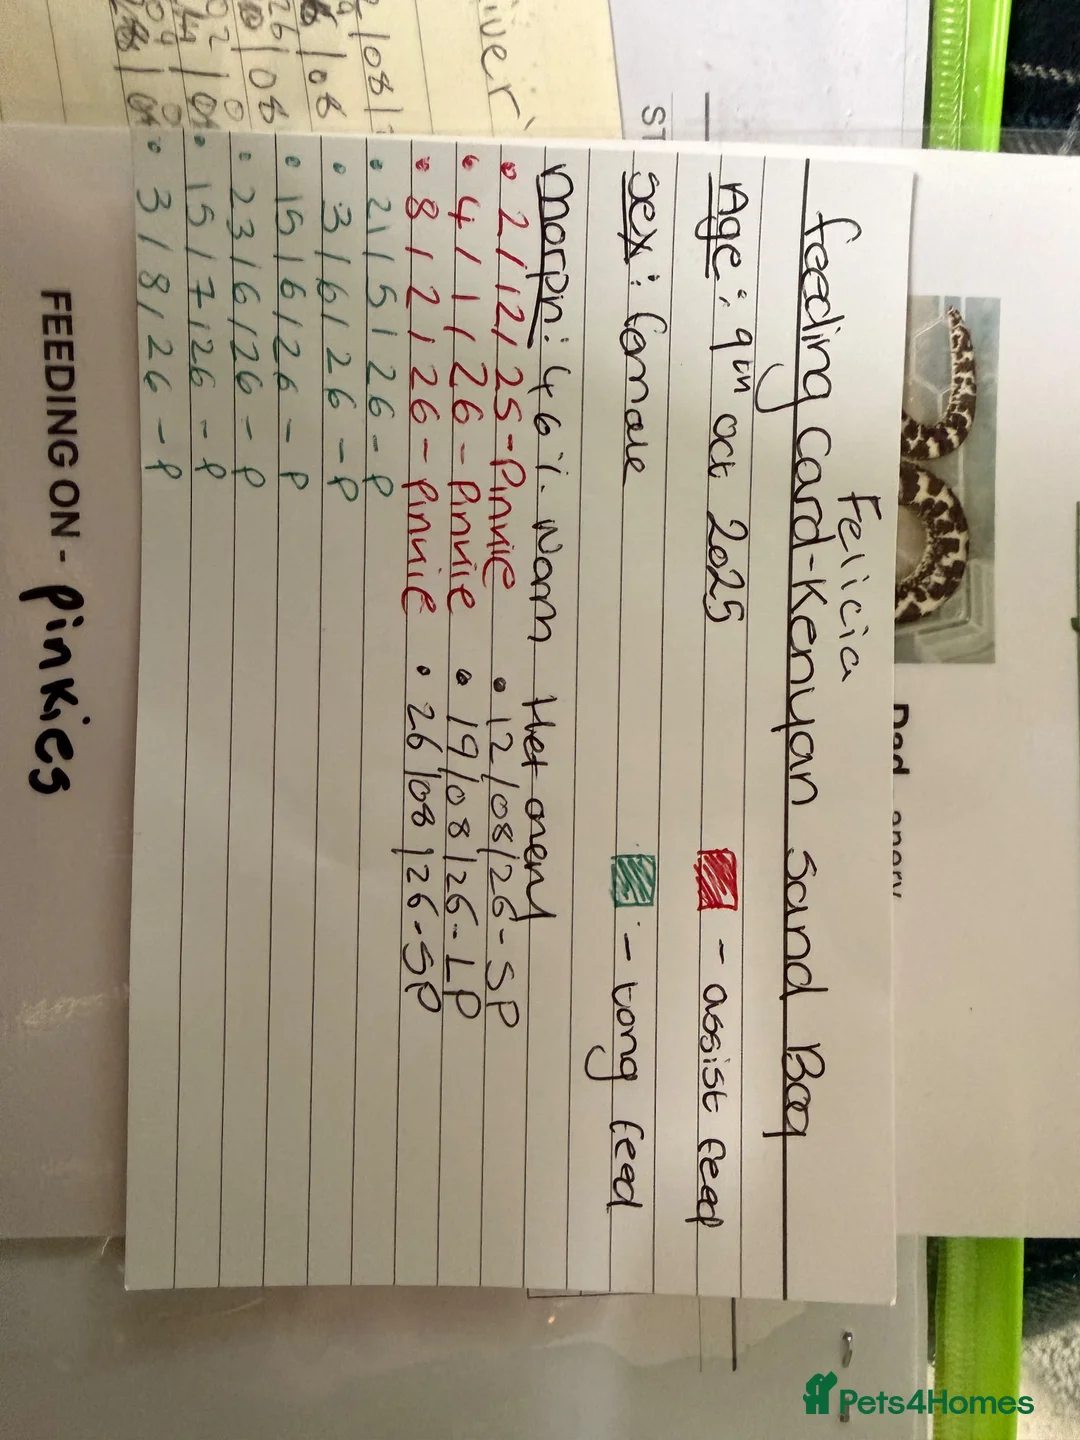 Felicia
feeding card-Kenyan sand Boa
Age: 9th oct 2025
- assist feed
sex: female
- tong feed
morph: 46%. Nam Het anery
• 21/12/25-Pinkie
• 4/1/26-Pinkie
• 8/2/26-Pinkie
• 21/5/26-P
• 3/6/26-P
• 15/6/26-P
• 23/6/26-P
• 15/7/26-P
• 3/8/26-P
• 12/08/26-SP
• 19/08/26-LP
• 26/08/26-SP
FEEDING ON - Pinkies
ST
Pets4Homes